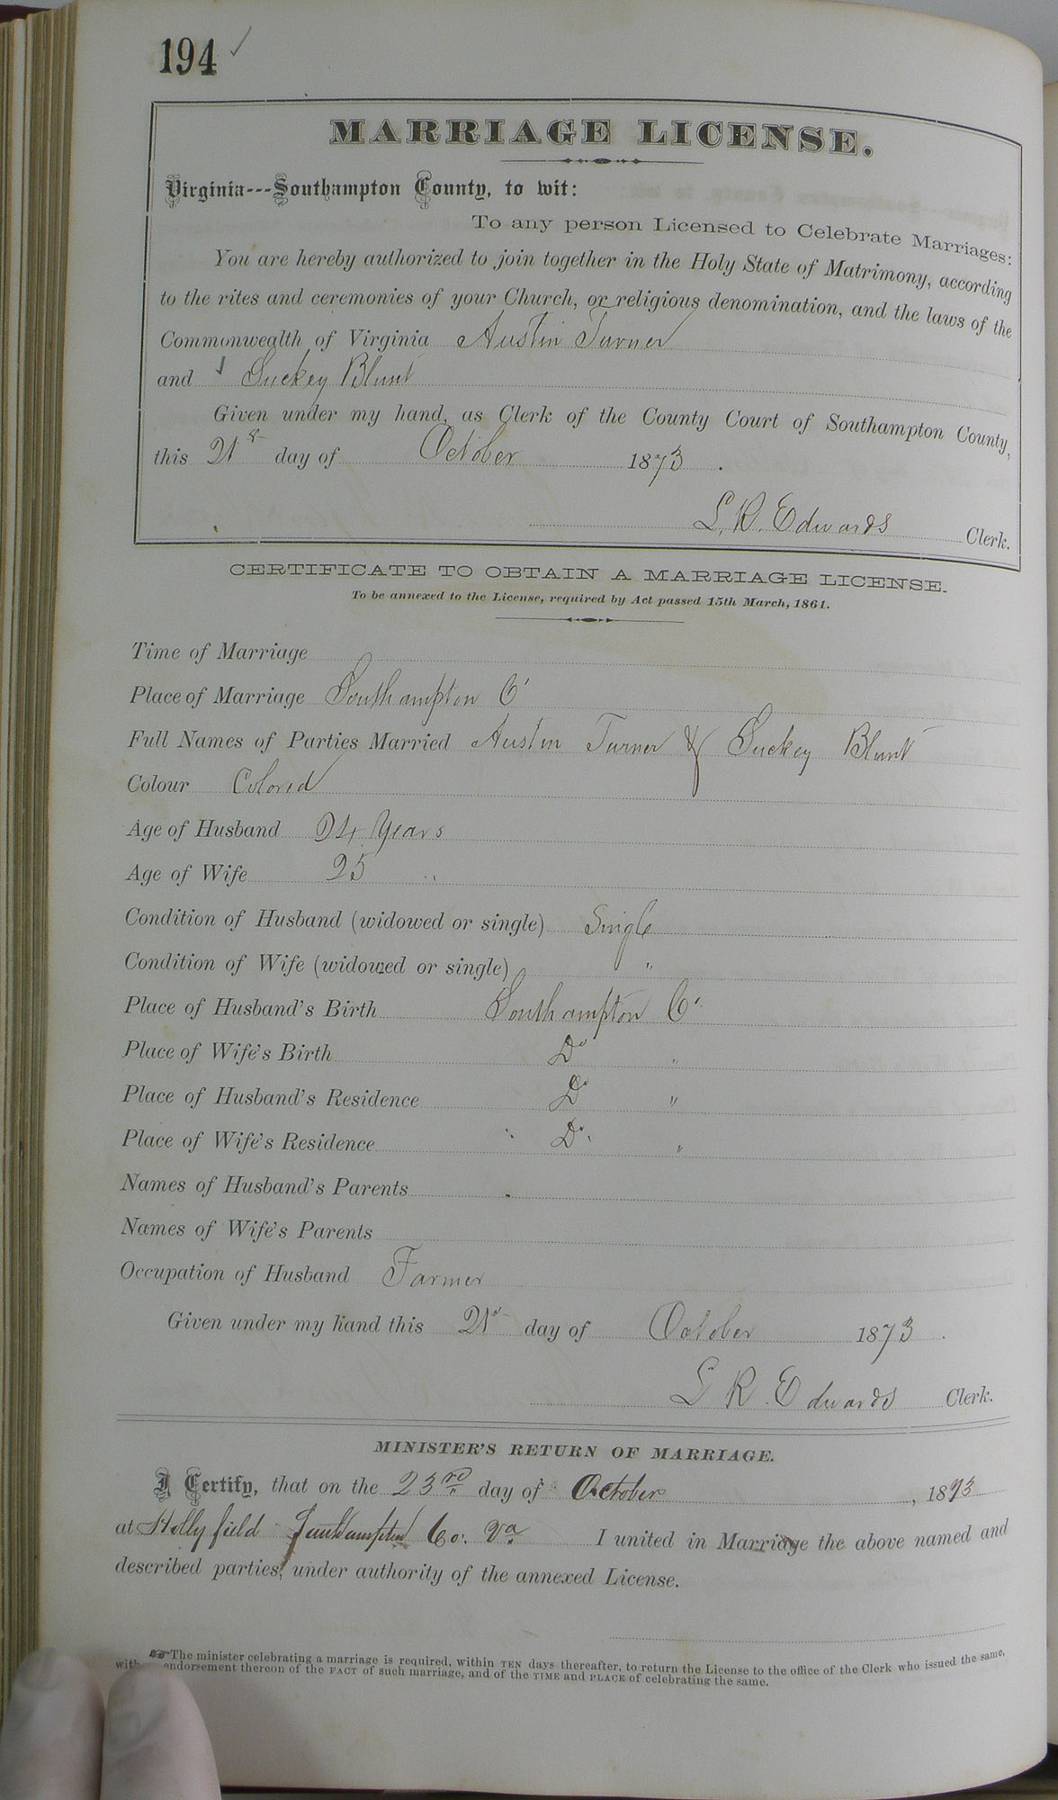 194 ✓
MARRIAGE LICENSE.
Virginia---Southampton County, to wit:
To any person Licensed to Celebrate Marriages:
You are hereby authorized to join together in the Holy State of Matrimony, according
to the rites and ceremonies of your Church, or religious denomination, and the laws of the
Commonwealth of Virginia Austin Turner
and Suckey Blunt
Given under my hand, as Clerk of the County Court of Southampton County,
this 21st day of October 1873.
L. R. Edwards Clerk.
CERTIFICATE TO OBTAIN A MARRIAGE LICENSE.
To be annexed to the License, required by Act passed 15th March, 1861.
Time of Marriage
Place of Marriage Southampton Co
Full Names of Parties Married Austin Turner & Suckey Blunt
Colour Colored
Age of Husband 24 Years
Age of Wife 25 "
Condition of Husband (widowed or single) Single
Condition of Wife (widowed or single) "
Place of Husband's Birth Southampton Co
Place of Wife's Birth Do "
Place of Husband's Residence Do "
Place of Wife's Residence Do "
Names of Husband's Parents
Names of Wife's Parents
Occupation of Husband Farmer
Given under my hand this 21st day of October 1873.
L R. Edwards Clerk.
MINISTER'S RETURN OF MARRIAGE.
I Certify, that on the 23rd day of October, 1873
at Hollyfield Southampton Co. Va. I united in Marriage the above named and
described parties, under authority of the annexed License.
☞The minister celebrating a marriage is required, within TEN days thereafter, to return the License to the office of the Clerk who issued the same,
with endorsement thereon of the FACT of such marriage, and of the TIME and PLACE of celebrating the same.